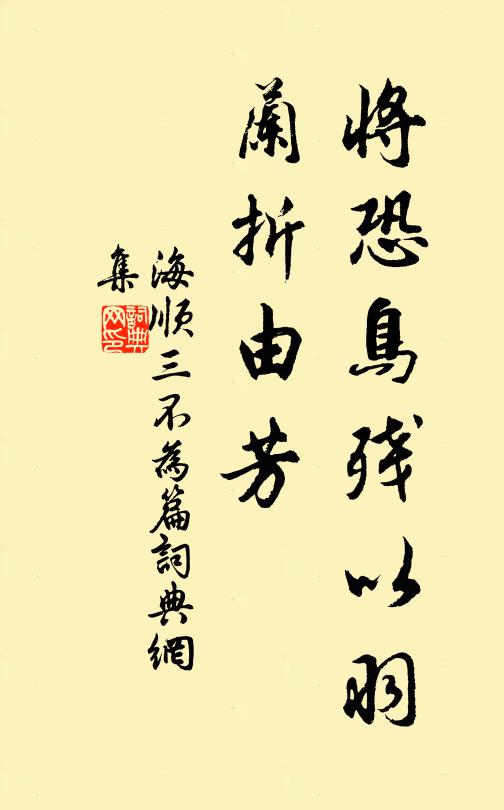 將恐鳥殘以羽
蘭折由芳
海順三不為篇詞典網
集
詞典
网印